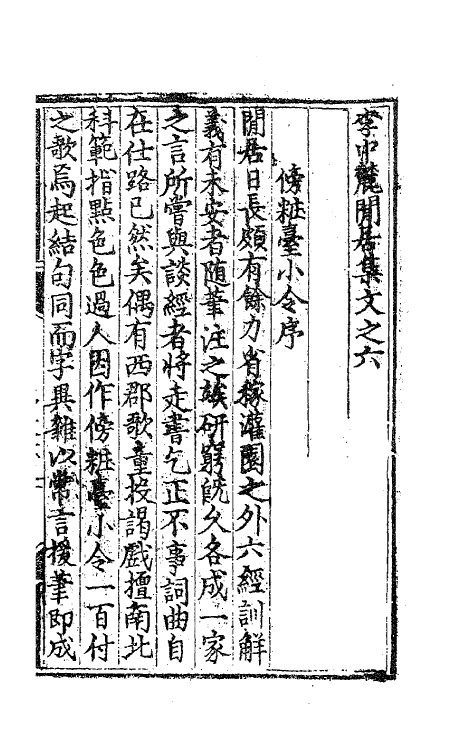 李中麓閒居集文之六
傍粧臺小令序
閒居日長頗有餘力省稼灌園之外六經訓解
義有未安者隨筆注之竢研窮旣久各成一家
之言所嘗與談經者將走書乞正不事詞曲自
在仕路已然矣偶有西郡歌童投謁戲擅南北
科範指點色色過人因作傍粧臺小令一百付
之歌焉起結句同而字異雜以常言援筆即成